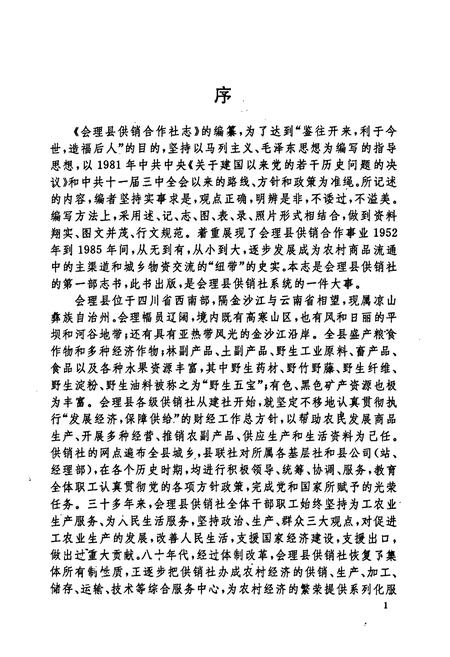 序
《会理县供销合作社志》的编纂,为了达到“鉴往开来,利于今
世,造福后人”的目的,坚持以马列主义、毛泽东思想为编写的指导
思想,以1981年中共中央《关于建国以来党的若干历史问题的决
议》和中共十一届三中全会以来的路线、方针和政策为准绳。所记述
的内容,编者坚持实事求是,观点正确,明辨是非,不诿过,不溢美。
编写方法上,采用述、记、志、图、表、录、照片形式相结合,做到资料
翔实、图文并茂、行文规范。着重展现了会理县供销合作事业1952
年到1985年间,从无到有,从小到大,逐步发展成为农村商品流通
中的主渠道和城乡物资交流的“纽带”的史实。本志是会理县供销社
的第一部志书,此书出版,是会理县供销社系统的一件大事。
会理县位于四川省西南部,隔金沙江与云南省相望,现属凉山
彝族自治州。会理幅员辽阔,境内既有高寒山区,也有风和日丽的平
坝和河谷地带;还有具有亚热带风光的金沙江沿岸。全县盛产粮食
作物和多种经济作物;林副产品、土副产品、野生工业原料、畜产品、
食品以及各种水果资源丰富,其中野生药材、野竹野藤、野生纤维、
野生淀粉、野生油料被称之为“野生五宝”;有色、黑色矿产资源也极
为丰富。会理县各级供销社从建社开始,就坚定不移地认真贯彻执
行“发展经济,保障供给”的财经工作总方针,以帮助农民发展商品
生产、开展多种经营、推销农副产品、供应生产和生活资料为己任。
供销社的网点遍布全县城乡,县联社对所属各基层社和县公司(站、
经理部),在各个历史时期,均进行积极领导、统筹、协调、服务,教育
全体职工认真贯彻党的各项方针政策,完成党和国家所赋予的光荣
任务。三十多年来,会理县供销社全体干部职工始终坚持为工农业
生产服务、为人民生活服务,坚持政治、生产、群众三大观点,对促进
工农业生产的发展,改善人民生活,支援国家经济建设,支援出口,
做出过重大贡献。八十年代,经过体制改革,会理县供销社恢复了集
体所有制性质,正逐步把供销社办成农村经济的供销、生产、加工、
储存、运输、技术等综合服务中心,为农村经济的繁荣提供系列化服
1